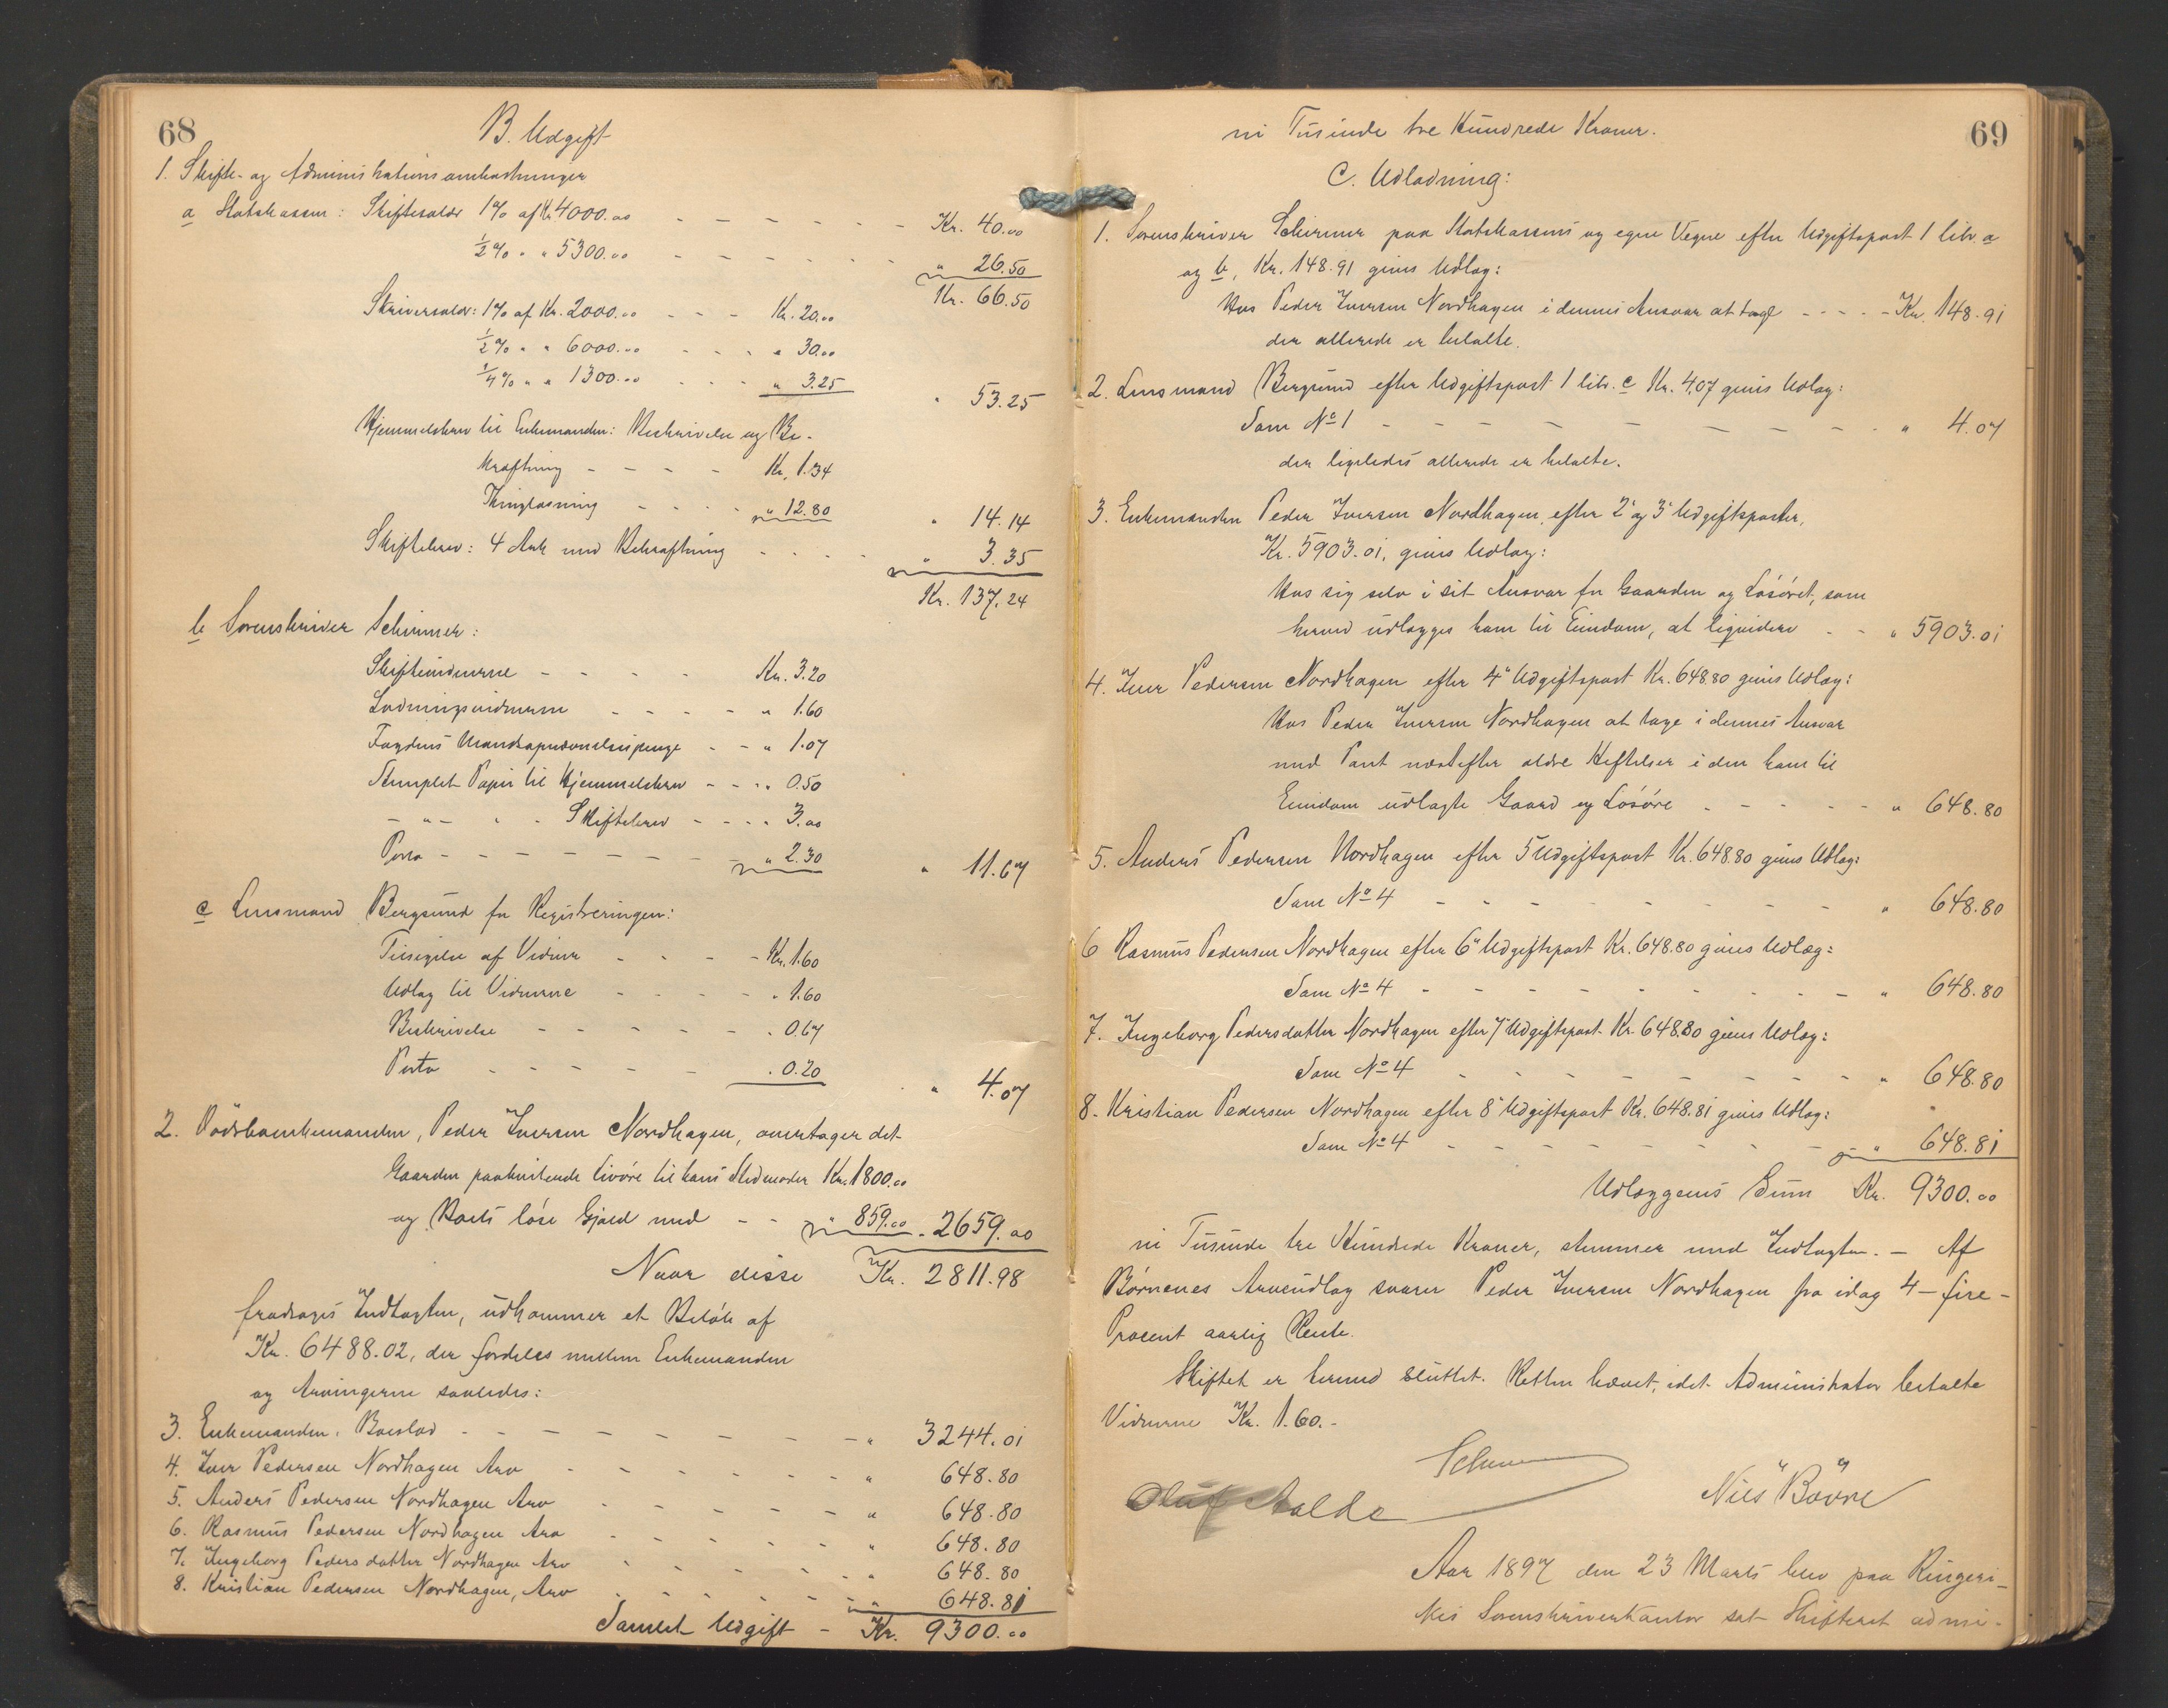 68
B. Udgift
1. Skifte- og Administrationsomkostninger
a Statskassen: Skiftesalær 1% af Kr. 4000.00 - - - - - - Kr. 40.00
½% " " 5300.00 - - - - - - " 26.50
Kr. 66.50
Skriversalær: 1% af Kr. 2000.00 - - - Kr. 20.00
½% " " 6000.00 - - - " 30.00
¼% " " 1300.00 - - - " 3.25
" 53.25
Hjemmelsbrev til Enkemanden: Beskrivelse og Be-
kræftning - - - - Kr. 1.34
Thinglæsning - - - - " 12.80
" 14.14
Skiftebrev: 4 Ark med Bekræftning - - - - " 3.35
Kr. 137.24
b Sorenskriver Schirmer:
Skiftevidnerne - - - - Kr. 3.20
Lodningsvidnerne - - - - " 1.60
Fogdens - - " 1.07
Stemplet Papir til Hjemmelsbrev - - - " 0.50
- " - " - Skiftebrev - - - " 3.00
Porto - - - - - - - " 2.30
" 11.67
c Lensmand Bergsund for Registreringen:
Tilsigelse af Vidner - - - - Kr. 1.60
Udlæg til Vidnerne - - - - " 1.60
Beskrivelse - - - - - " 0.67
Porto - - - - - " 0.20
" 4.07
2. Dödsboenkemanden, Peder Iversen Nordhagen, overtager det
Gaarden paahvilende Livöre til hans Stedmoder Kr. 1800.00
og Boets löse Gjæld med - - " 859.00 " 2659.00
Naar disse Kr. 2811.98
fradrages Indtægten, udkommer et Belöb af
Kr. 6488.02, der fordeles mellem Enkemanden
og Arvingerne saaledes:
3. Enkemanden, Boeslod - - - - - - - - " 3244.01
4. Iver Pedersen Nordhagen Arv - - - - - - " 648.80
5. Anders Pedersen Nordhagen Arv - - - - - " 648.80
6. Rasmus Pedersen Nordhagen Arv - - - - - " 648.80
7. Ingeborg Pedersdatter Nordhagen Arv - - - - - " 648.80
8. Kristian Pedersen Nordhagen, Arv - - - - - " 648.81
Samlet Udgift - Kr. 9300.00
69
ni Tusinde tre Hundrede Kroner.
C. Udlodning:
1. Sorenskriver Schirmer paa Statskassens og egne Vegne efter Udgiftspost 1 litr. a
og b, Kr. 148.91 gives Udlæg:
Hos Peder Iversen Nordhagen i dennes Ansvar at tage - - - - Kr. 148.91
der allerede er betalte.
2. Lensmand Bergsund efter Udgiftspost 1 litr. c Kr. 4.07 gives Udlæg:
Som No 1 - - - - - - - - - " 4.07
der ligeledes allerede er betalte.
3. Enkemanden Peder Iversen Nordhagen, efter 2' og 3' Udgiftsposter,
Kr. 5903.01, gives Udlæg:
Hos sig selv i sit Ansvar for Gaarden og Lösöret, som
herved udlægges ham til Eiendom, at liquidere - - " 5903.01
4. Iver Pedersen Nordhagen efter 4' Udgiftspost Kr. 648.80 gives Udlæg:
Hos Peder Iversen Nordhagen at tage i dennes Ansvar
med Pant næstefter ældre Heftelser i den ham til
Eiendom udlagte Gaard og Lösöre - - - - - " 648.80
5. Anders Pedersen Nordhagen efter 5 Udgiftspost Kr. 648.80 gives Udlæg:
Som No 4 - - - - - - - - " 648.80
6 Rasmus Pedersen Nordhagen efter 6' Udgiftspost Kr. 648.80 gives Udlæg:
Som No 4 - - - - - - - - " 648.80
7. Ingeborg Pedersdatter Nordhagen efter 7' Udgiftspost Kr. 648.80 gives Udlæg:
Som No 4 - - - - - - - - " 648.80
8. Kristian Pedersen Nordhagen efter 8' Udgiftspost Kr. 648.81 gives Udlæg:
Som No 4 - - - - - - - - " 648.81
Udlæggenes Sum Kr. 9300.00
ni Tusinde tre Hundrede Kroner, stemmer med Indtægten. - Af
Börnenes Arveudlæg svarer Peder Iversen Nordhagen fra idag 4 - fire -
Procent aarlig Rente.
Skiftet er herved sluttet. Retten hævet, idet Administrator betalte
Vidnerne Kr. 1.60. -
Schirmer
Oluf Aalde
Nils Bövre
Aar 1897 den 23 Marts blev paa Ringeri-
kes Sorenskriverkontor sat Skifteret admi-